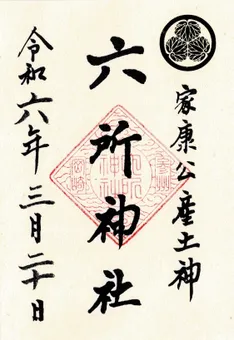 家康公産土神
六所神社
令和六年三月二十日